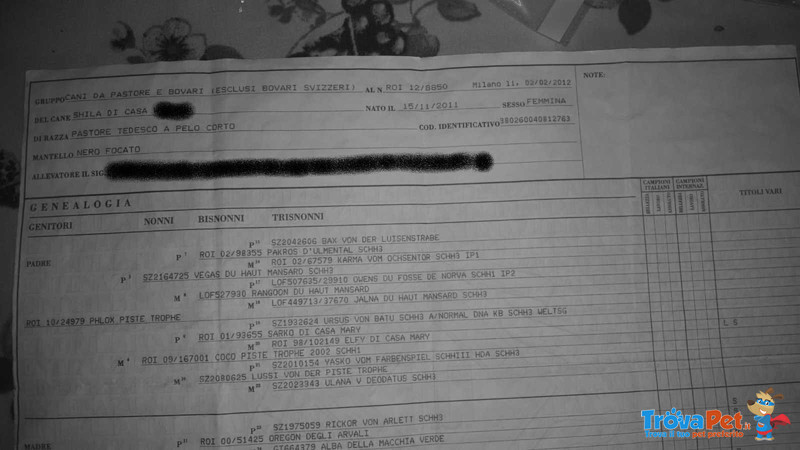 GRUPPO CANI DA PASTORE E BOVARI (ESCLUSI BOVARI SVIZZERI) AL N ROI 12/8850 Milano 11, 02/02/2012
NOTE:
DEL CANE SHILA DI CASA NATO IL 15/11/2011 SESSO FEMMINA
DI RAZZA PASTORE TEDESCO A PELO CORTO COD. IDENTIFICATIVO 980260040812763
MANTELLO NERO FOCATO
ALLEVATORE IL SIG
GENEALOGIA
CAMPIONI ITALIANI CAMPIONI INTERNAZ. TITOLI VARI
GENITORI NONNI BISNONNI TRISNONNI
BELLEZZA LAVORO
P SZ2042606 BAX VON DER LUISENSTRABE
P ROI 02/98355 PAKROS D'ULMENTAL SCHH3
PADRE
M ROI 02/67579 KARMA VOM OCHSENTOR SCHH3 IP1
P SZ2164725 VEGAS DU HAUT MANSARD SCHH3
P LOF507635/29910 OWENS DU FOSSE DE NORVA SCHH1 IP2
M LOF527930 RANGOON DU HAUT MANSARD
M LOF449713/37670 JALNA DU HAUT MANSARD SCHH3
ROI 10/24979 PHLOX PISTE TROPHE
P SZ1932624 URSUS VON BATU SCHH3 A/NORMAL DNA KB SCHH3 WELTSG
P ROI 01/93655 SARKO DI CASA MARY
M ROI 98/102149 ELFY DI CASA MARY
M ROI 09/167001 COCO PISTE TROPHE 2002 SCHH1
P SZ2010154 YASKO VOM FARBENSPIEL SCHHIII HDA SCHH3
M SZ2080625 LUSSI VON DER PISTE TROPHE
M SZ2023343 ULANA V DEODATUS SCHH3
P SZ1975059 RICKOR VON ARLETT SCHH3
P ROI 00/51425 OREGON DEGLI ARVALI
MADRE
ALBA DELLA MACCHIA VERDE
TrovaPet.it
Trova il tuo pet preferito